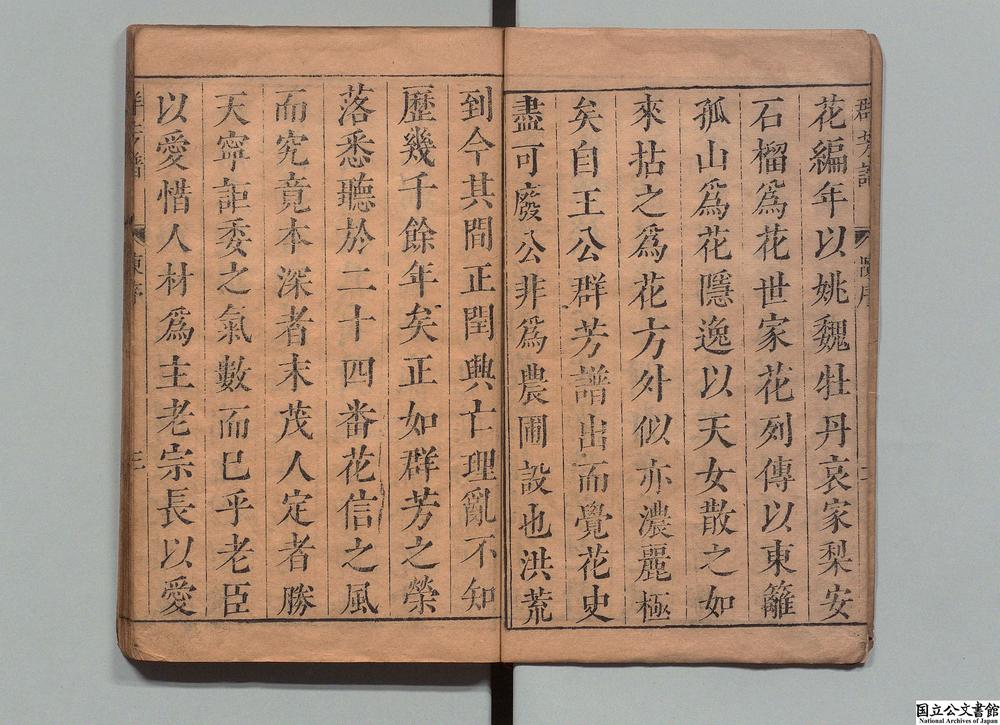 花編年以姚魏牡丹哀家梨安
石榴爲花世家花列傳以東籬
孤山爲花隱逸以天女散之如
來拈之爲花方外似亦濃麗極
矣自王公群芳譜出而覺花史
盡可廢公非爲農圃設也洪荒
到今其間正閏興亡理亂不知
歷幾千餘年矣正如群芳之榮
落悉聽於二十四番花信之風
而究竟本深者末茂人定者勝
天寧詎委之氣數而已乎老臣
以愛惜人材爲主老宗長以愛
群芳譜
陳序
三
国立公文書館
National Archives of Japan